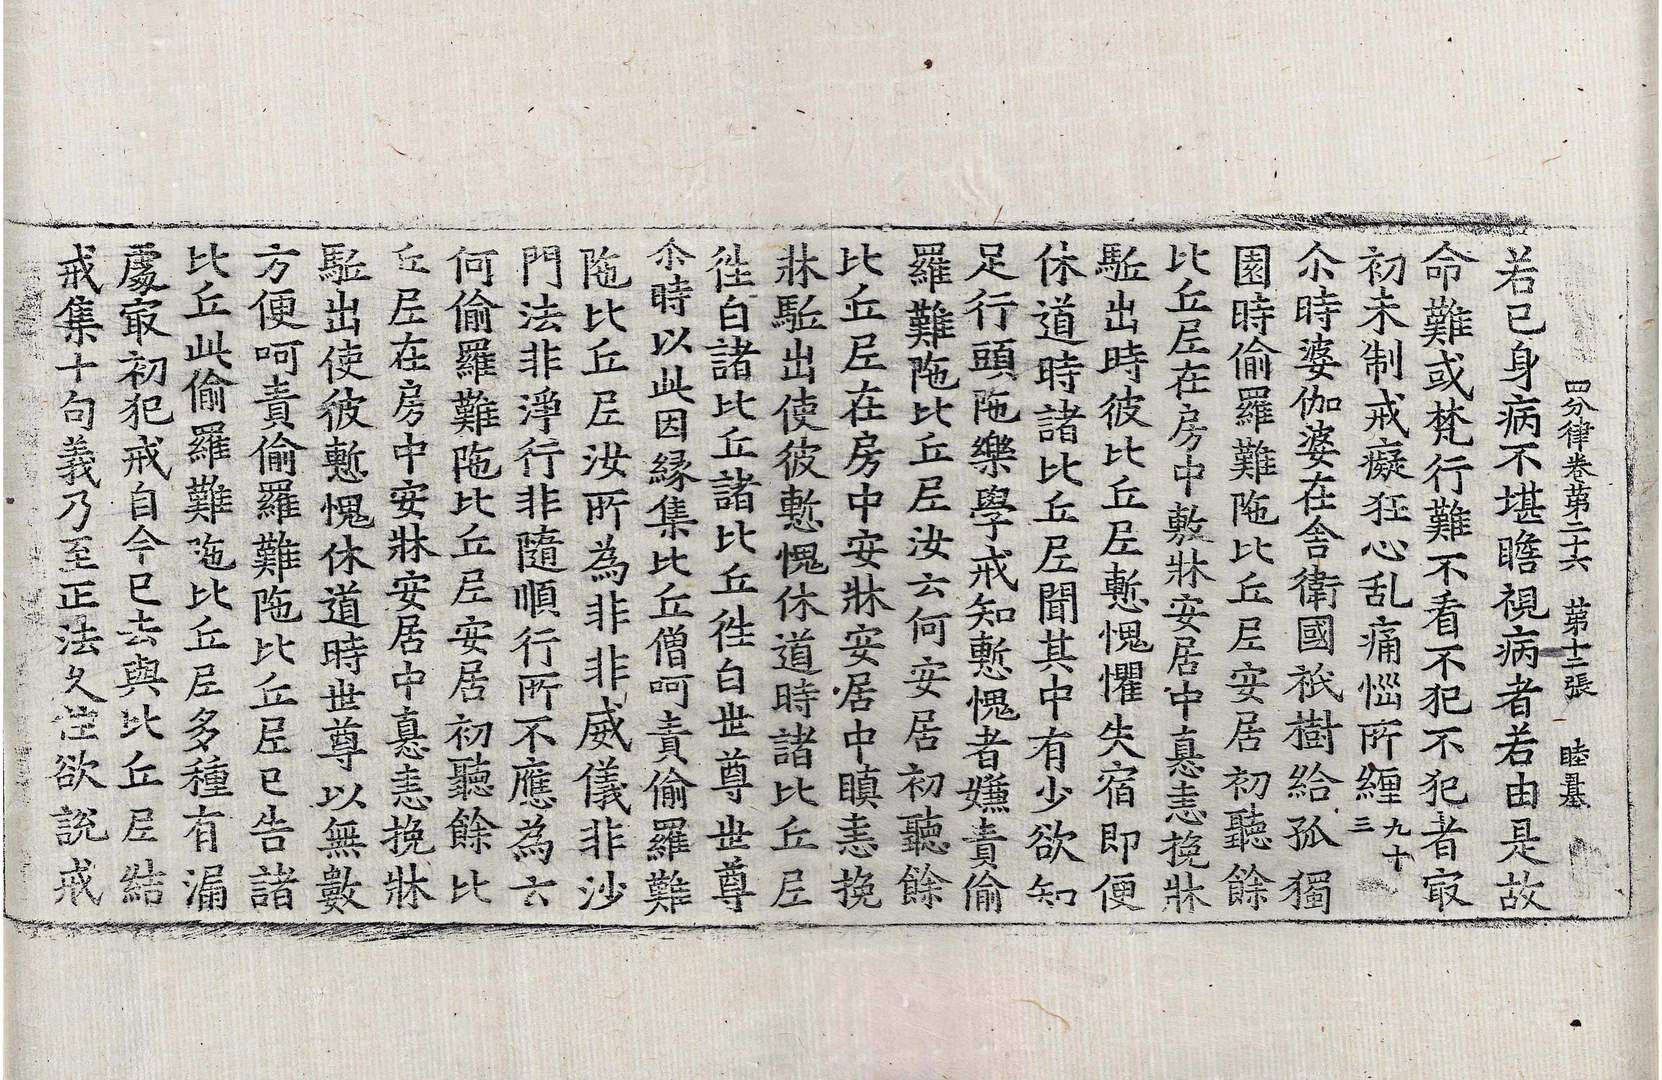 四分律卷第二十六 第十二張 睦
若已身病不堪瞻視病者若由是故
命難或梵行難不看不犯不犯者㝡
初未制戒癡狂心乱痛惱所纏九十三
尒時婆伽婆在舍衛國祇樹給孤獨
園時偷羅難陁比丘尼安居初聽餘
比丘尼在房中敷牀安居中恚恚挽牀
駈出時彼比丘尼慙愧懼失宿即便
休道時諸比丘尼聞其中有少欲知
足行頭陁樂學戒知慙愧者嫌責偷
羅難陁比丘尼汝云何安居初聽餘
比丘尼在房中安牀安居中瞋恚挽
牀駈出使彼慙愧休道時諸比丘尼
徃白諸比丘諸比丘徃白世尊世尊
尒時以此因縁集比丘僧呵責偷羅難
陁比丘尼汝所為非非威儀非沙
門法非淨行非隨順行所不應為云
何偷羅難陁比丘尼安居初聽餘比
丘尼在房中安牀安居中恚恚挽牀
駈出使彼慙愧休道時世尊以無數
方便呵責偷羅難陁比丘尼已告諸
比丘此偷羅難陁比丘尼多種有漏
處㝡初犯戒自今已去與比丘尼結
戒集十句義乃至正法久住欲說戒